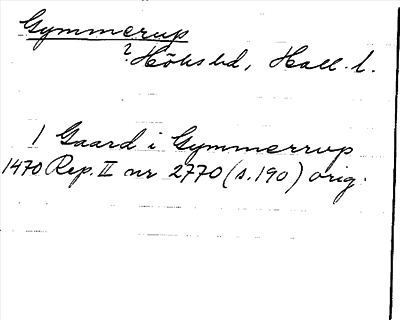 Gymmerup
? Höks hd, Hall. l.
1 Gaard i Gymmerrup
1470 Rep. II nr 2770 (s. 190) orig.